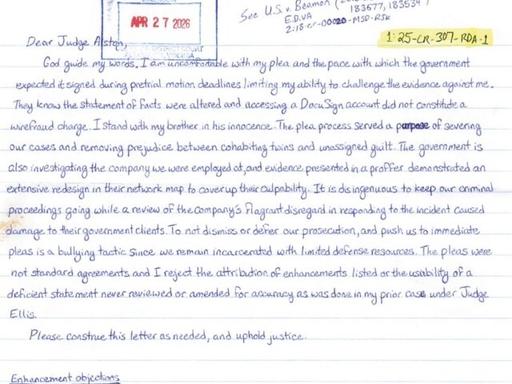 See U.S. v. Beamon
183677, 183534
E.D.VA
APR 27 2026
1:25-CR-307-RDA-1
Dear Judge Alston,
God guide my words. I am uncomfortable with my plea and the pace with which the government
expected it signed during pretrial motion deadlines limiting my ability to challenge the evidence against me.
They know the statement of facts were altered and accessing a DocuSign account did not constitute a
wirefraud charge. I stand with my brother in his innocence. The plea process served a purpose of severing
our cases and removing prejudice between cohabiting twins and unassigned guilt. The government is
also investigating the company we were employed at, and evidence presented in a proffer demonstrated an
extensive redesign in their network map to coverup their culpability. It is disingenuous to keep our criminal
proceedings going while a review of the company's flagrant disregard in responding to the incident caused
damage to their government clients. To not dismiss or defer our prosecution, and push us to immediate
pleas is a bullying tactic since we remain incarcerated with limited defense resources. The pleas were
not standard agreements and I reject the attribution of enhancements listed or the usability of a
deficient statement never reviewed or amended for accuracy as was done in my prior case under Judge
Ellis.
Please construe this letter as needed, and uphold justice.
Enhancement objections